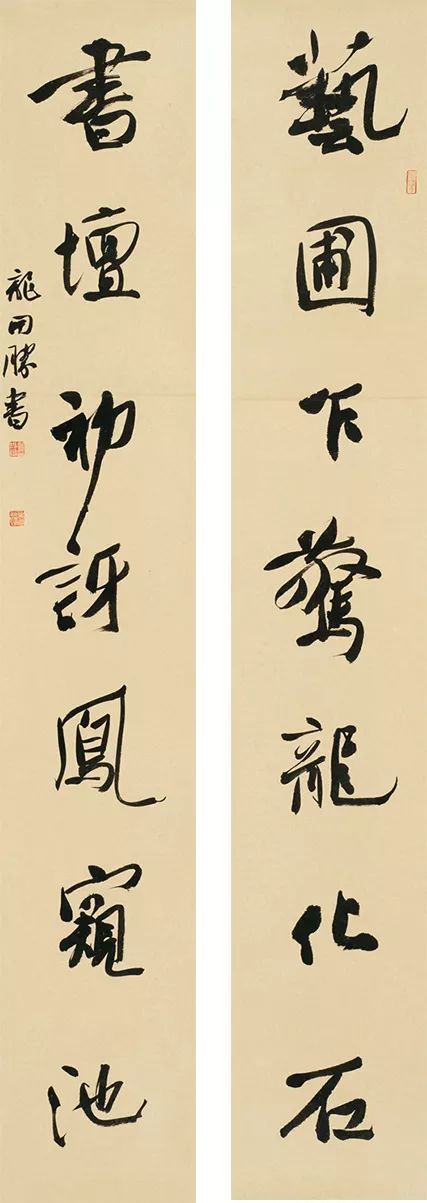 藝圃乍驚龍化石
書壇初訝鳳窺池
龍開勝書